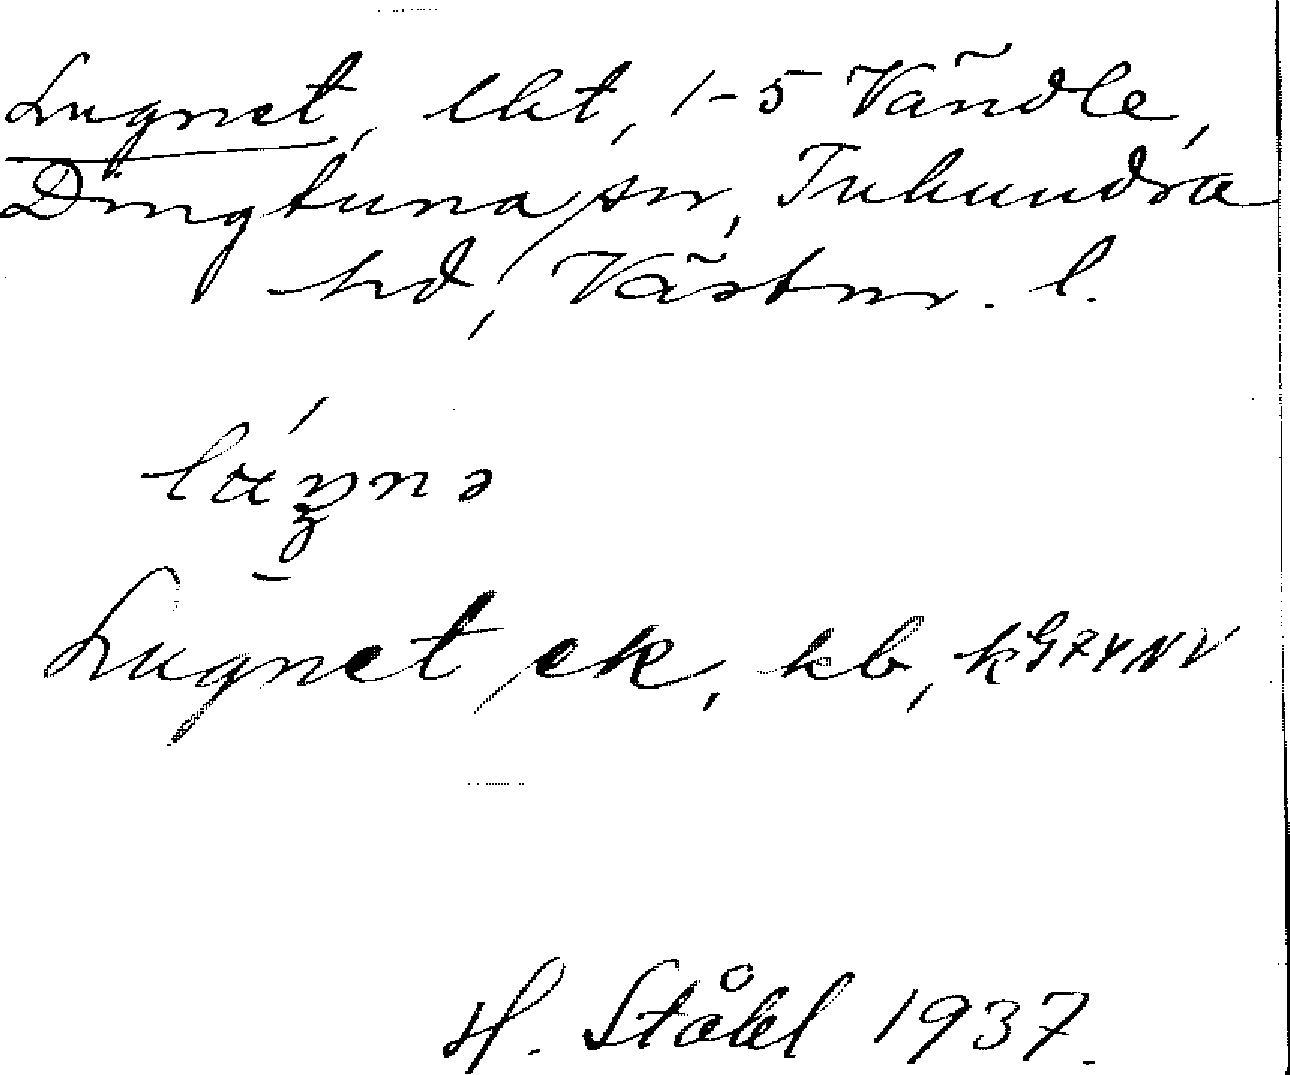 Lugnet, lht, 1-5 Vändle,
Dingtuna sn, Tuhundra
hd, Västm. l.
Lugnet ek, kb,
H. Ståhl 1937.